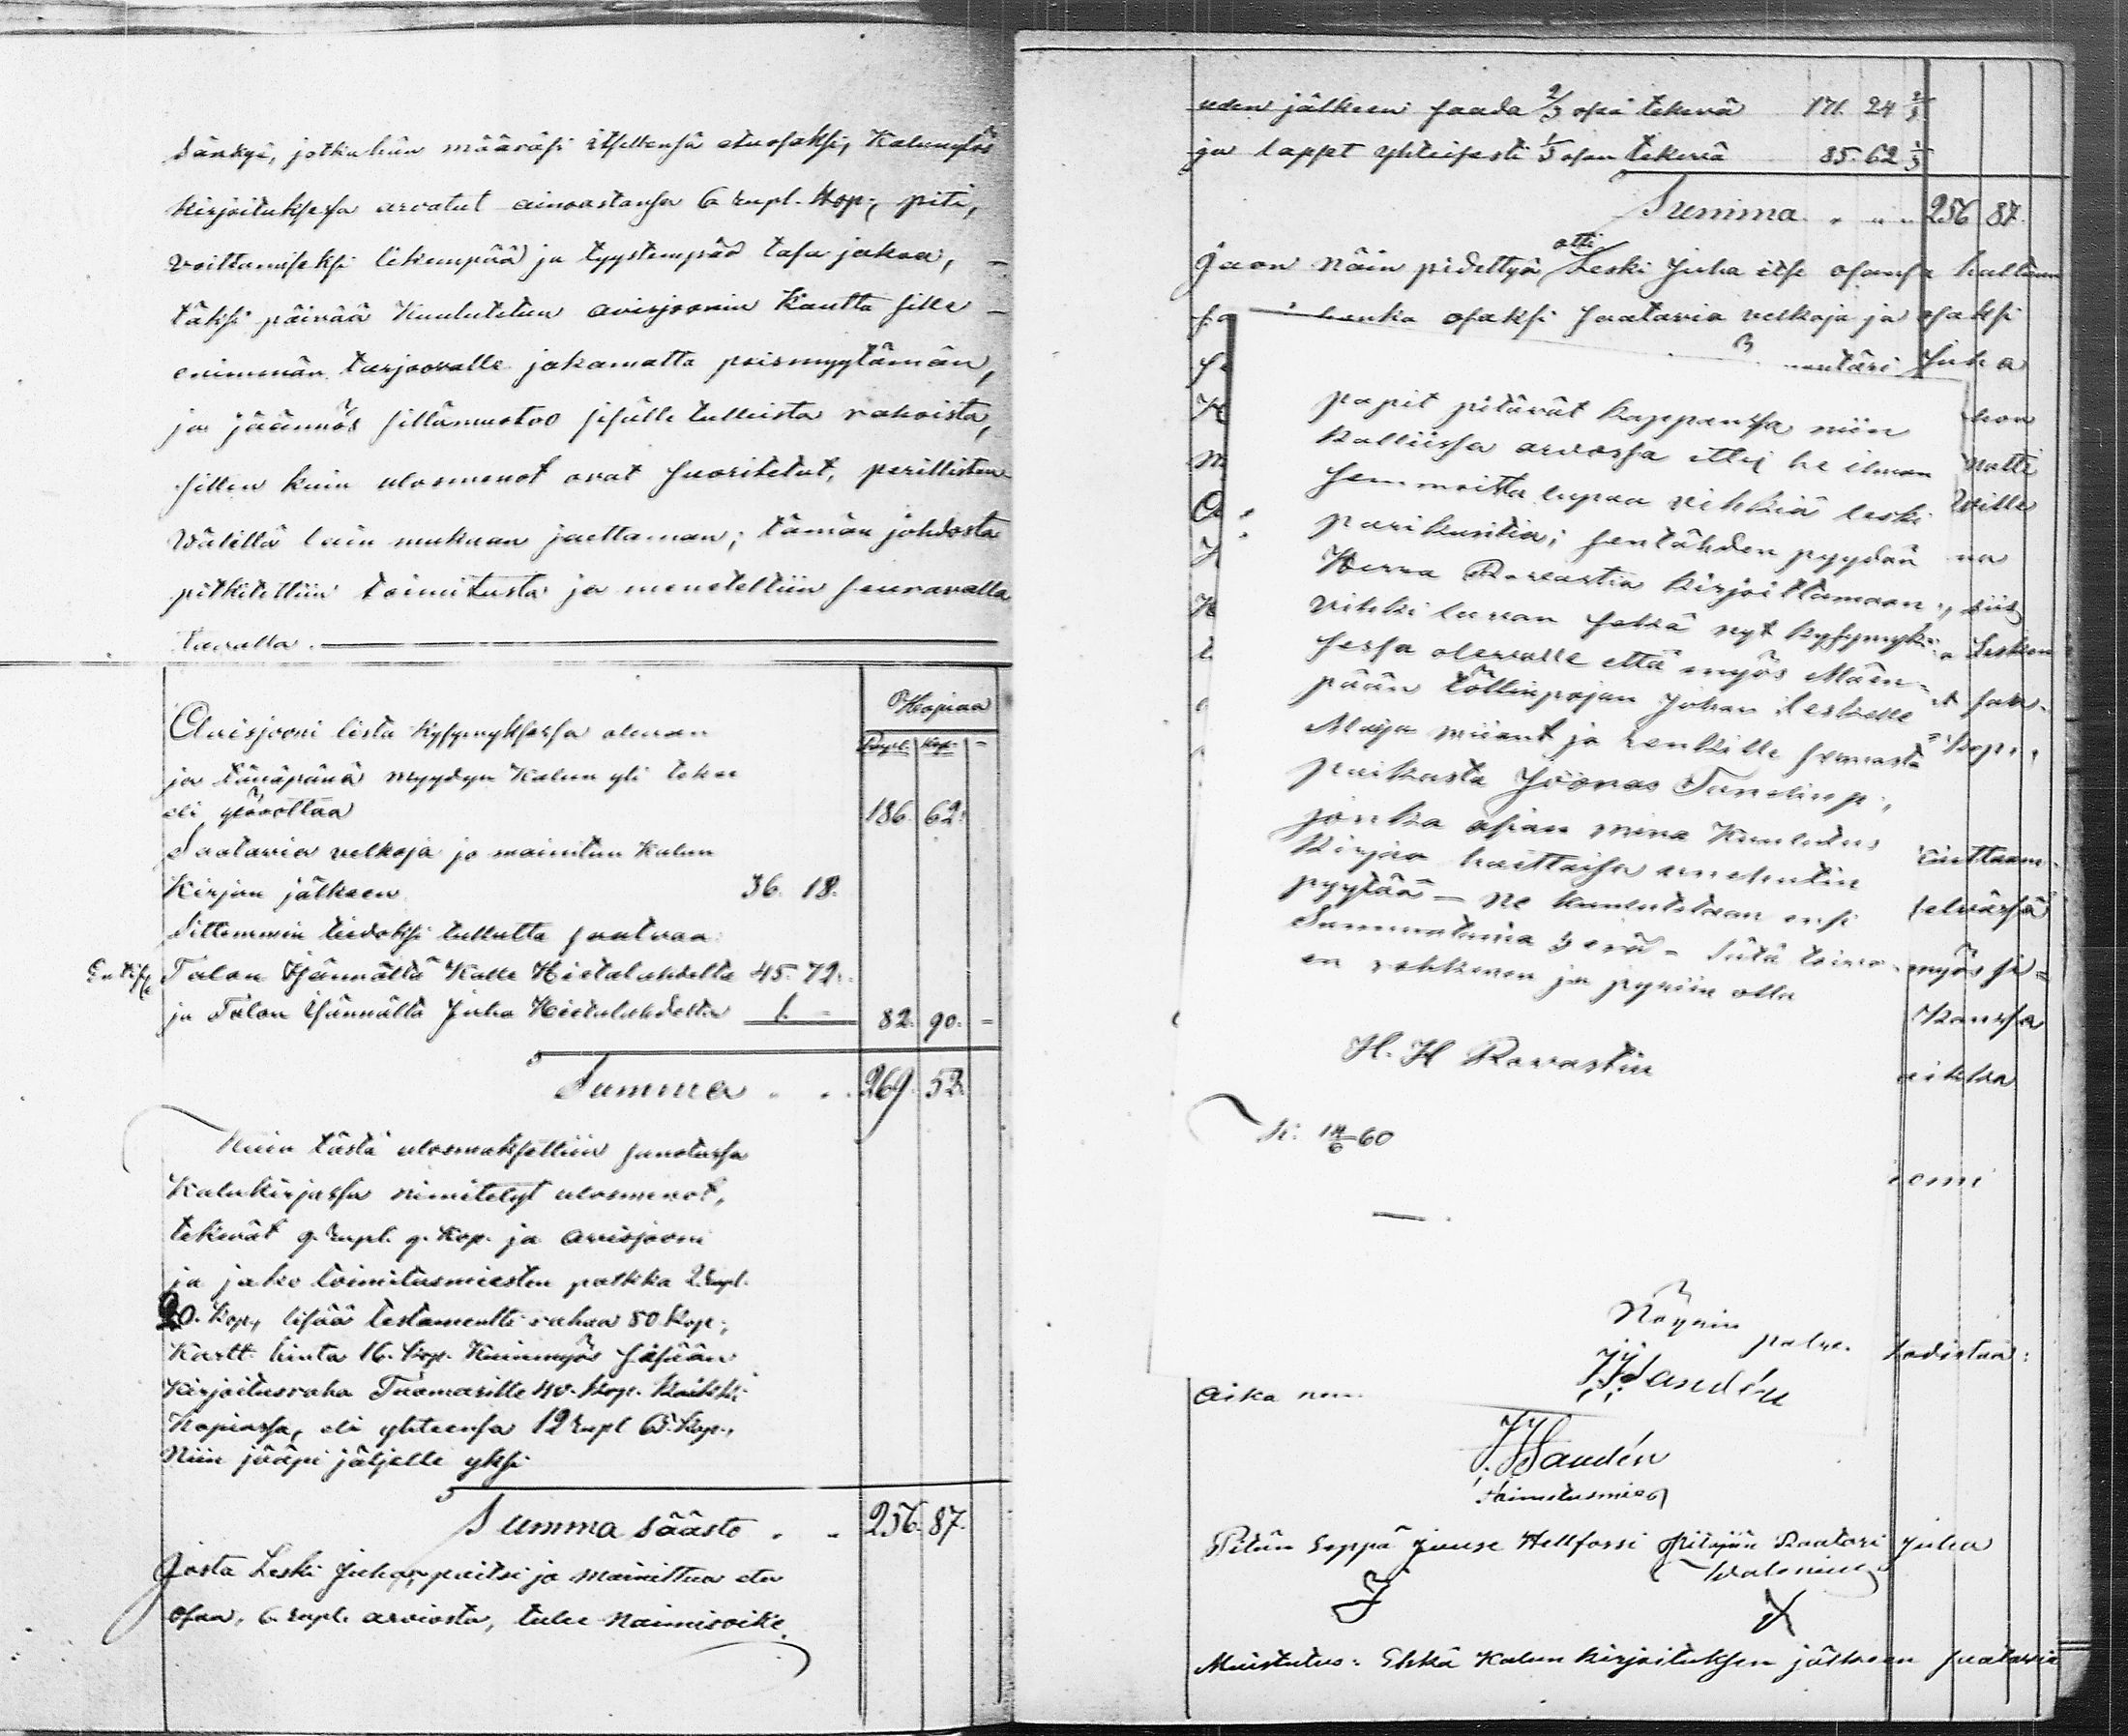 sänkyä, jotka hän määräsi itsellensä etuosaksi, Kalunylös
kirjoituksessa arvatut ainoastansa 6 rupl. Kop:, piti,
voittamiseksi likempää ja tyystempää tasa jakoa, –
täksi päivää Kuulutetun avisjoonin Kautta sille –
enimmän tarjoovalle jakamatta poismyytämän,
ja jäännös sillämuotoo sisälle tulleista rahoista,
sitten kuin ulosmenot ovat suoritetut, perillisten
Välillä lain mukaan jaettaman; tämän johdosta
pitkitettiin toimitusta ja meneteltiin seuravalla
tavalla.
Hopiaa
Rupl. Kop. –
Auisjooni lista kysymyksessä olevan
ja tänäpänä myydyn Kalun yli tekee
eli ylösottaa 186. 62.
Saatavia velkoja jo mainitun Kalun
Kirjan jälkeen 36. 18.
Sittemmin tiedoksi tullutta saatavaa:
Talon Isännältä Kalle Hietalahdelta 45. 72.
ja Talon Isännältä Juha Hietalahdelta 1. – 82. 90. –
Summa . . 269. 52.
Kuin tästä ulosmaksettiin sanotussa
Kalukirjassa nimitetyt ulosmenot,
tekevät 9. rupl. 9. Kop. ja avisjooni
ja jako toimitusmiesten palkka 2. rupl.
20. Kop, lisää testamentti rahaa 50 Kop;
Kartt. hinta 16. Kop. Kuinmyös sisään
Kirjoitusraha Tuomarille 40. Kop. Kaikki
Hopiassa, eli yhteensä 12 rupl 65. Kop.,
Niin jääpi jäljelle yksi
Summa säästö . . 256. 87.
Josta Leski Juha, paitsi jo mainittua etu
osaa, 6. rupl. arviosta, tulee Naimisoike.
uden jälkeen saada 2/3 osa tekevä 171. 24 2/3
ja lapset yhteisesti 1/3 osan tekevä 85. 62 1/3
Summa . . . . 256 87.
Jaon Näin pidettyä otti Leski Juha itse osansa haltuun
osaksi saatavia velkoja ja osaksi
Juha
papit pitävät kappansa niin
kalliissa arvossa ettej he ilman
semmoista lupaa vihkiä leski
parikuntia; sentähden pyydän
Herra Rovastia kirjoittamaan
vihki luvan sekä nyt kysymyk:
sessa olevalle että myös Mäen:
pään Töllinpojan Johan Leskelle
Maija miiant ja renkille samasta
paikasta Joonas Tanelinp:,
jonka asian minä Kuulutus
Kirjaa haettaisa unehutin
pyytää – Ne kuulutetaan ensi
Sunnuntaina 3 erä – Sitä toivo
en rohkenen ja pyriin olla
H. H Rovastin
K: 14/6 60
Nöyrin
palve.
JSandén
Matti
Wille
siis
Lesken
Kop:,
myös si=
Kanssa
todistaa:
Aika
JSandén
Toimitusmies
Pitäjän Seppä Juuse Hellforssi Pitäjän Raatari Juha
Walenius
J X
Muistutus: Ehkä Kalun kirjoituksen jälkeen saatavia